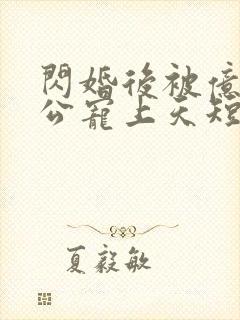 閃婚後被億
公寵上天短
夏毅敏